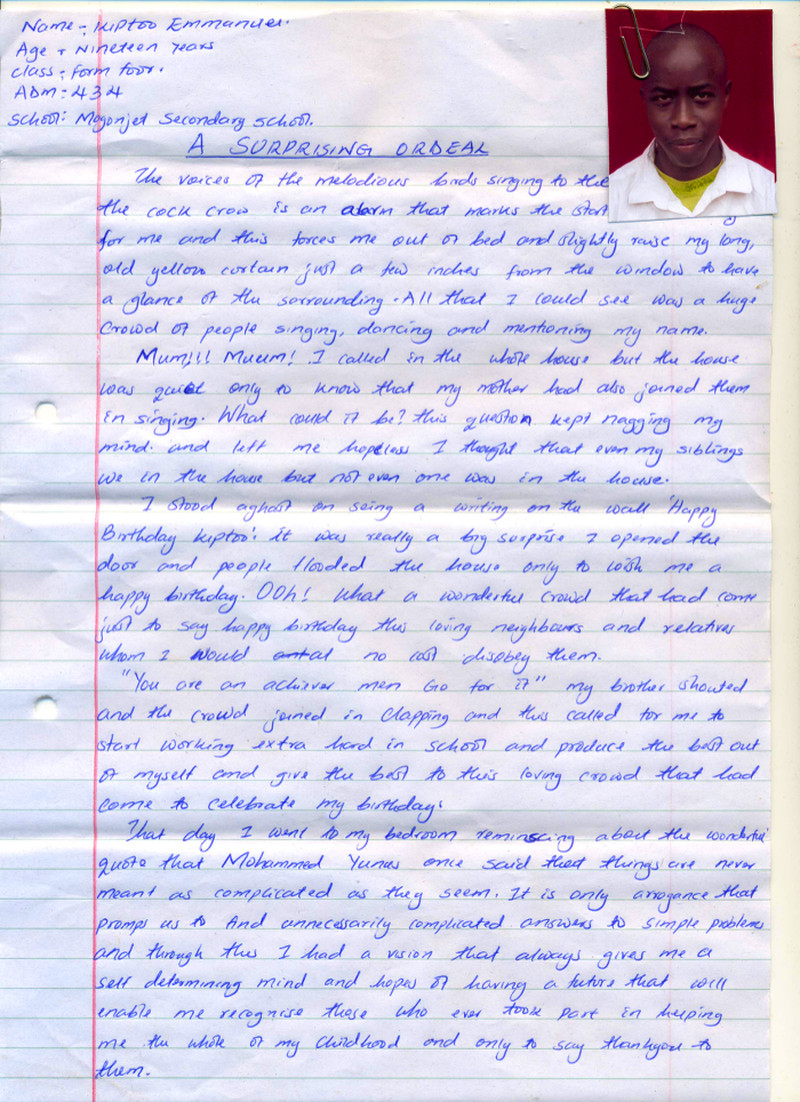 Name :- Kiptoo Emmanuel.
Age :- Nineteen Years
Class :- Form Four.
ADM :- 434
School: Mogonjet Secondary School.
A SURPRISING ORDEAL
The voices of the melodious birds singing to the
the cock crow is an alarm that marks the start
for me and this forces me out of bed and slightly raise my long,
old yellow curtain just a few inches from the window to have
a glance of the sorrounding. All that I could see was a huge
Crowd of people singing, dancing and mentioning my name.
Mum!!! Muum! I called in the whole house but the house
was quiet only to know that my mother had also joined them
in singing. What could it be? this question kept nagging my
mind. and left me hopeless I thought that even my siblings
we in the house but not even one was in the house.
I stood aghast on seing a writing on the wall 'Happy
Birthday Kiptoo'. it was really a big surprise I opened the
door and people flooded the house only to wish me a
happy birthday. OOh! What a wonderful crowd that had come
just to say happy birthday this loving neighbours and relatives
whom I would at no cost disobey them.
"You are an achiever men Go for it" my brother shouted
and the crowd joined in clapping and this called for me to
start working extra hard in school and produce the best out
of myself and give the best to this loving crowd that had
come to celebrate my birthday.
That day I went to my bedroom reminscing about the wonderful
quote that Mohammed Yunus once said that things are never
meant as complicated as they seem. It is only arrogance that
promps us to find unnecessarily complicated answers to simple problems
and through this I had a vision that always gives me a
self determining mind and hopes of having a future that will
enable me recognise those who ever took part in helping
me the whole of my childhood and only to say thankyou to
them.